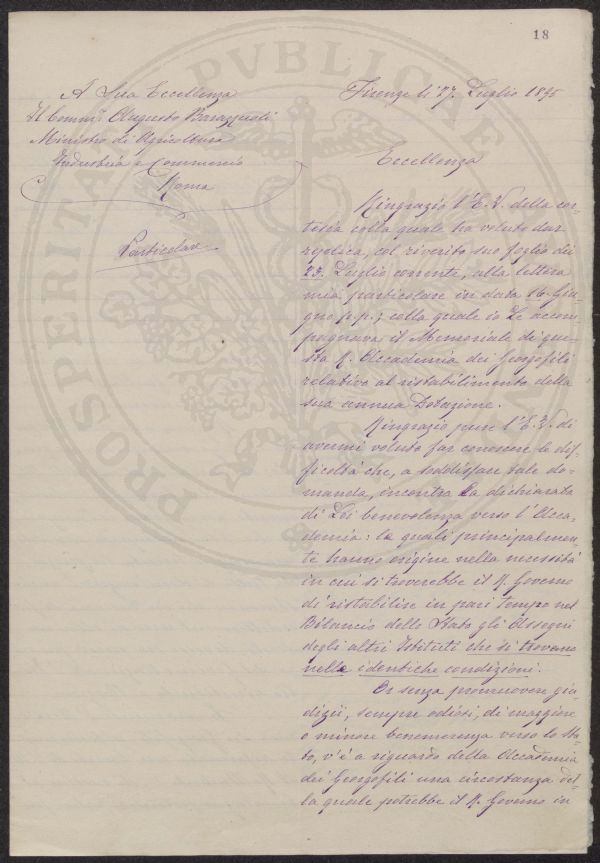 18
A Sua Eccellenza
Il Comm. Augusto Barazzuoli
Ministro di Agricoltura
Industria e Commercio
Roma
Particolare
Firenze li 27. Luglio 1895
Eccellenza
Ringrazio l'E. V. della cor-
tesia colla quale ha voluto dar
replica, col riverito suo foglio dei
23. Luglio corrente, alla lettera
mia particolare in data 16. Giu-
gno p.p.; colla quale io Le accom-
pagnava il Memoriale di que-
sta R. Accademia dei Georgofili
relativo al ristabilimento della
sua annua Dotazione.
Ringrazio pure l'E. V. di
avermi voluto far conoscere le dif-
ficoltà che, a soddisfare tale do-
manda, incontra la dichiarata
di Lei benevolenza verso l'Acca-
demia: le quali principalmen-
te hanno origine nella necessità
in cui si troverebbe il R. Governo
di ristabilire in pari tempo nel
Bilancio dello Stato gli Assegni
degli altri Istituti che si trovano
nelle identiche condizioni.
Or senza promuovere giu-
dizii, sempre odiosi, di maggiore
o minore benemerenza verso lo Sta-
to, v'è a riguardo della Accademia
dei Georgofili una circostanza del-
la quale potrebbe il R. Governo in
PROSPERITA PVBLICAE